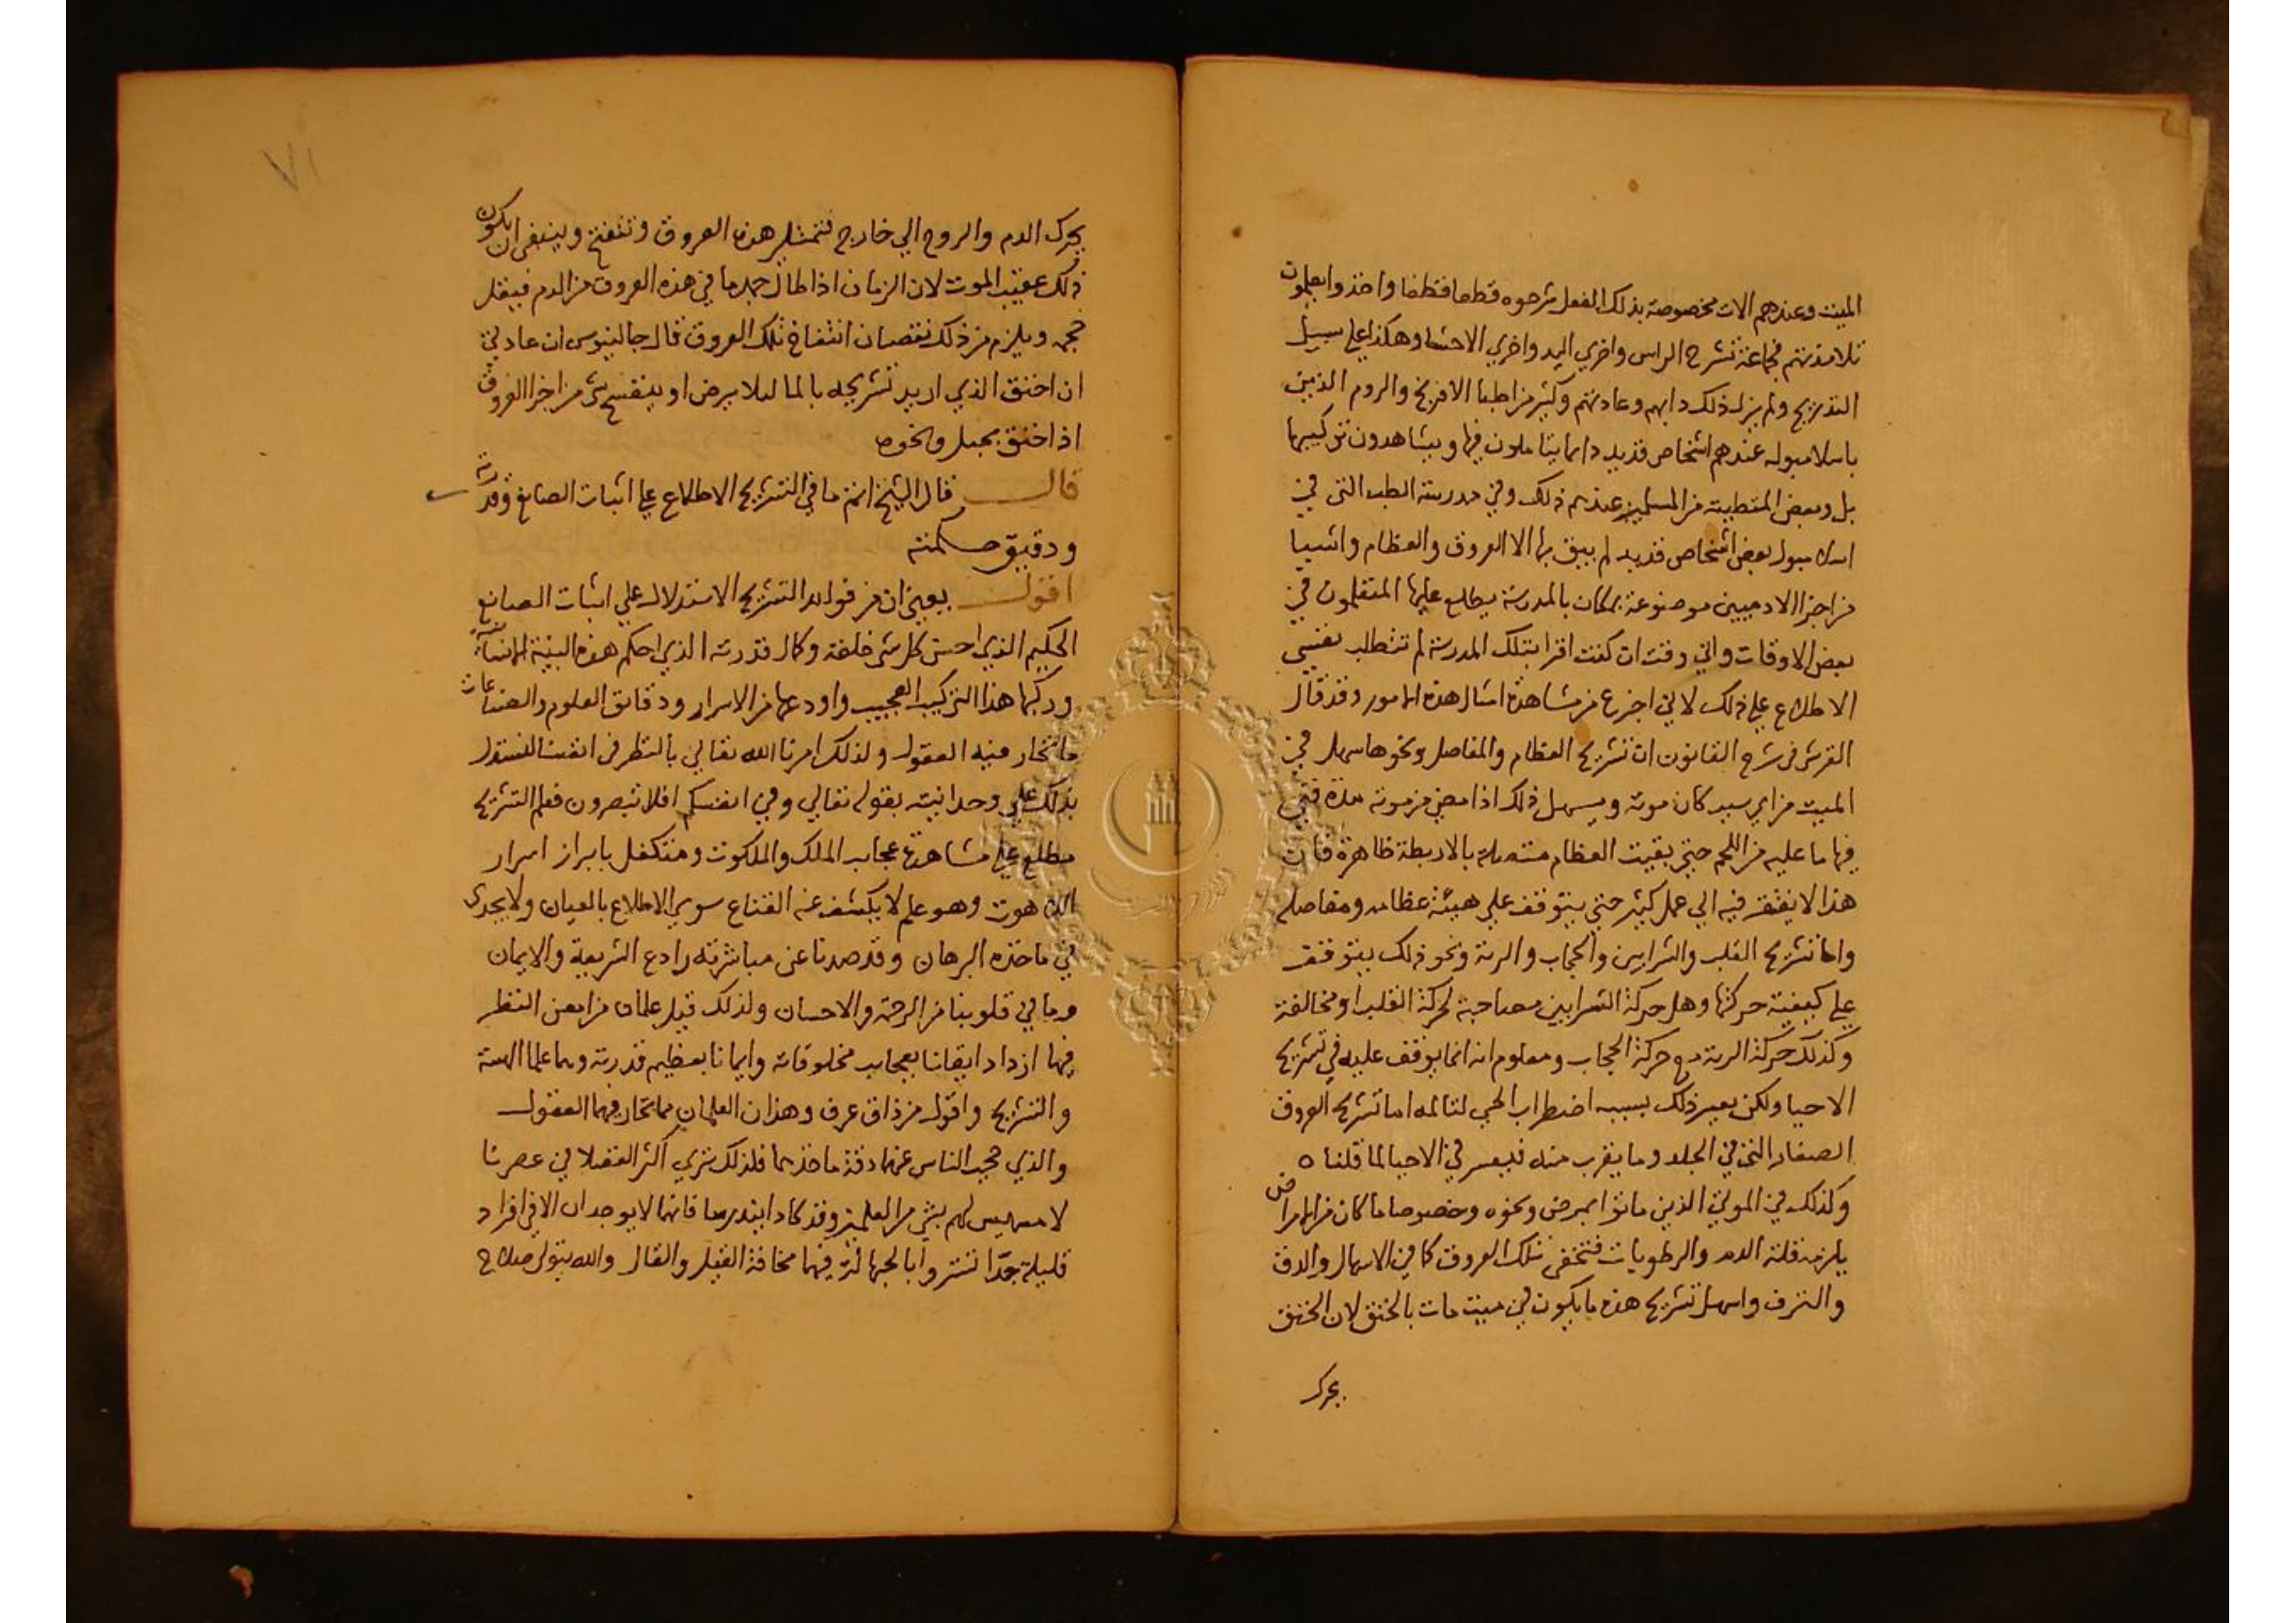 الميت وعندهم الات مخصوصة بذلك الفعل شرحوه قطعا قطعا واخذوا يعلمون
تلامذتهم فجماعة تشرح الراس واخري اليد واخري الاحشا وهكذا علي سبيل
التدريج ولم يزل ذلك دابهم وعادتهم وكثير من اطبا الافرنج والروم الذين
باسلامبول عندهم اشخاص قديد دايما يتاملون فيها ويشاهدون تركيبها
بل وبعض المتطببة من المسلمين عندهم ذلك وفي مدرسة الطب التي في
اسلامبول بعض اشخاص قديد لم يبق بها الا العروق والعظام واشيا
من اجزا الادميين موضوعة بمكان بالمدرسة يطلع عليها المتعلمون في
بعض الاوقات واني وقت ان كنت اقرا بتلك المدرسة لم تتطلب نفسي
الاطلاع علي ذلك لاني اجزع من مشاهدة امثال هذه الامور وقد قال
القرشي في شرح القانون ان تشريح العظام والمفاصل ونحوها سهل في
الميت من اي سبب كان موته ويسهل ذلك اذا مضي من موته مدة فني
فيها ما عليه من اللحم حتي بقيت العظام متصلة بالاربطة ظاهرة فان
هذا لا يفتقر فيه الي عمل كثير حتي يتوقف علي هيئة عظامه ومفاصله
واما تشريح القلب والشرايين والحجاب والرية ونحو ذلك يتوقف
علي كيفية حركتها وهل حركة الشرايين مصاحبة لحركة القلب او مخالفة
وكذلك حركة الرية مع حركة الحجاب ومعلوم انه انما يوقف عليه في تشريح
الاحيا ولكن يعسر ذلك بسبب اضطراب الحي لتالمه اما تشريح العروق
الصغار التي في الجلد وما يقرب منه فيعسر في الاحيا لما قلناه
وكذلك في الموتي الذين ماتوا بمرض ونحوه وخصوصا ما كان من الامراض
يلزمه قلة الدم والرطوبات فتخفي تلك العروق كما في الاسهال والدق
والنزف واسهل تشريح هذه ما يكون في ميت مات بالخنق لان الخنق
يحرك
٧١
يحرك الدم والروح الي خارج فتمتلي هذه العروق وتنتفخ وينبغي ان يكون
ذلك عقيب الموت لان الزمان اذا طال جمد ما في هذه العروق من الدم فيقل
حجمه ويلزم من ذلك نقصان انتفاخ تلك العروق قال جالينوس ان عادتي
ان اخنق الذي اريد تشريحه بالما ليلا يرض او ينفسخ شي من اجزا العروق
اذا خنق بحبل ونحوه
قال قال الشيخ انتم ما في التشريح الاطلاع علي اثبات الصانع وقدرته
ودقيق حكمته
اقول يعني ان من فوايد التشريح الاستدلال علي اثبات الصانع
الحكيم الذي احسن كل شي خلقه وكمال قدرته الذي احكم هذه البنية الانسانية
وركبها هذا التركيب العجيب واودعها من الاسرار ودقائق العلوم والصناعات
ما تحار فيه العقول ولذلك امرنا الله تعالي بالنظر في انفسنا لنستدل
بذلك علي وحدانيته بقوله تعالي وفي انفسكم افلا تبصرون فعلم التشريح
مطلع علي مشاهدة عجايب الملك والملكوت ومتكفل بابراز اسرار
اللاهوت وهو علم لا يكشف عنه القناع سوي الاطلاع بالعيان ولا يجدي
في ماخذه البرهان وقد صدنا عن مباشرته رادع الشريعة والايمان
وما في قلوبنا من الرحمة والاحسان ولذلك قيل علمان من امعن النظر
فيها ازداد ايقانا بعجايب مخلوقاته وايمانا بعظيم قدرته وهما علما الهيئة
والتشريح واقول من ذاق عرف وهذان العلمان مما تحار فيهما العقول
والذي حجب الناس عنهما دقة ماخذهما فلذلك تري اكثر الفضلا في عصرنا
لا مسيس لهم بشي من العلمين وقد كادا يندرسا فانهما لا يوجدان الا في افراد
قليلة جدا تستروا بالجهالة فيهما مخافة القيل والقال والله يتولي صلاح